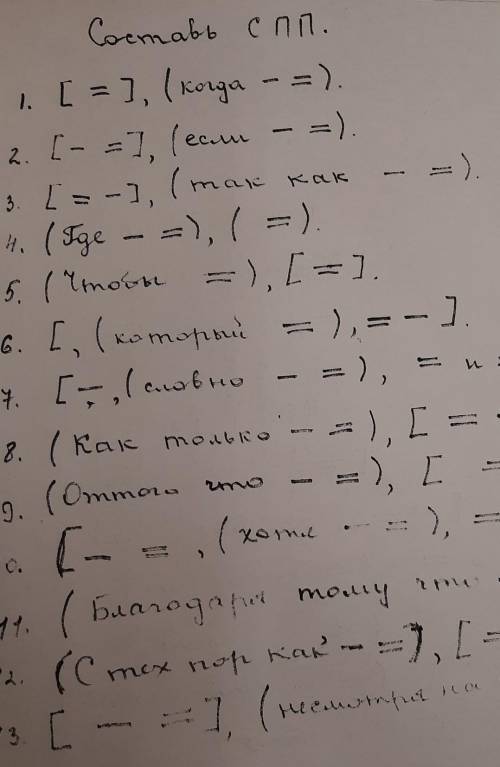 Составь СПП.
1. [ = ], (когда – =).
2. [– =], (если – =).
3. [= –], (так как – =).
4. (Где – =), ( =).
5. (Чтобы =), [=].
6. [, (который =), = –].
7. [–, (словно – =), = и =
8. (Как только – =), [= -
9. (Оттого что – =), [ =
0. [– =, (хотя – =), =
11. (Благодаря тому что -
2. (С тех пор как – =), [=
3. [ – =], (несмотря на